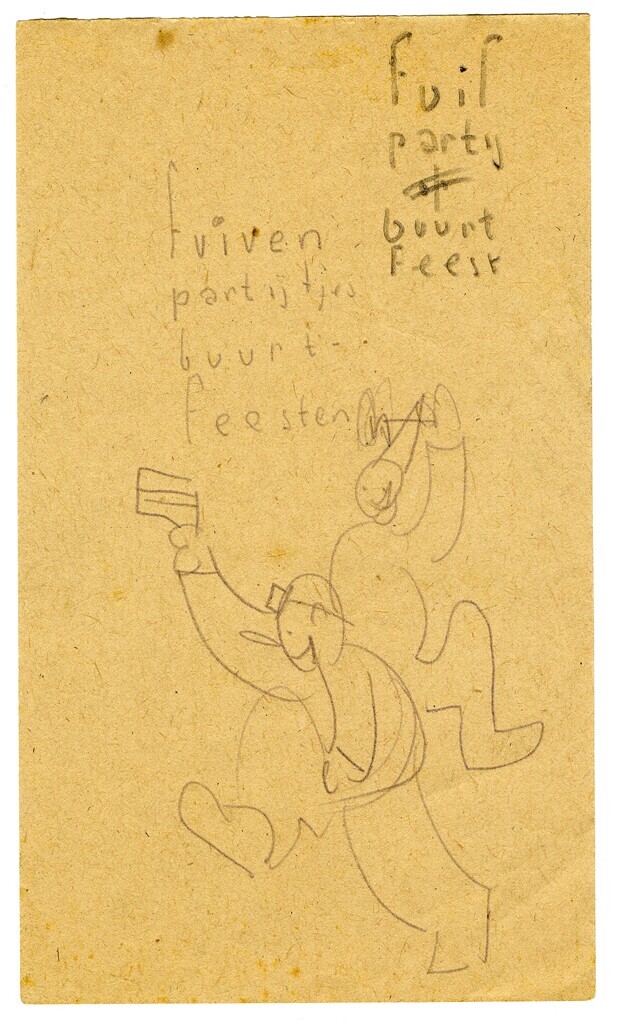 fuif
partij
buurt
feest
fuiven
partijtjes
buurt-
feesten